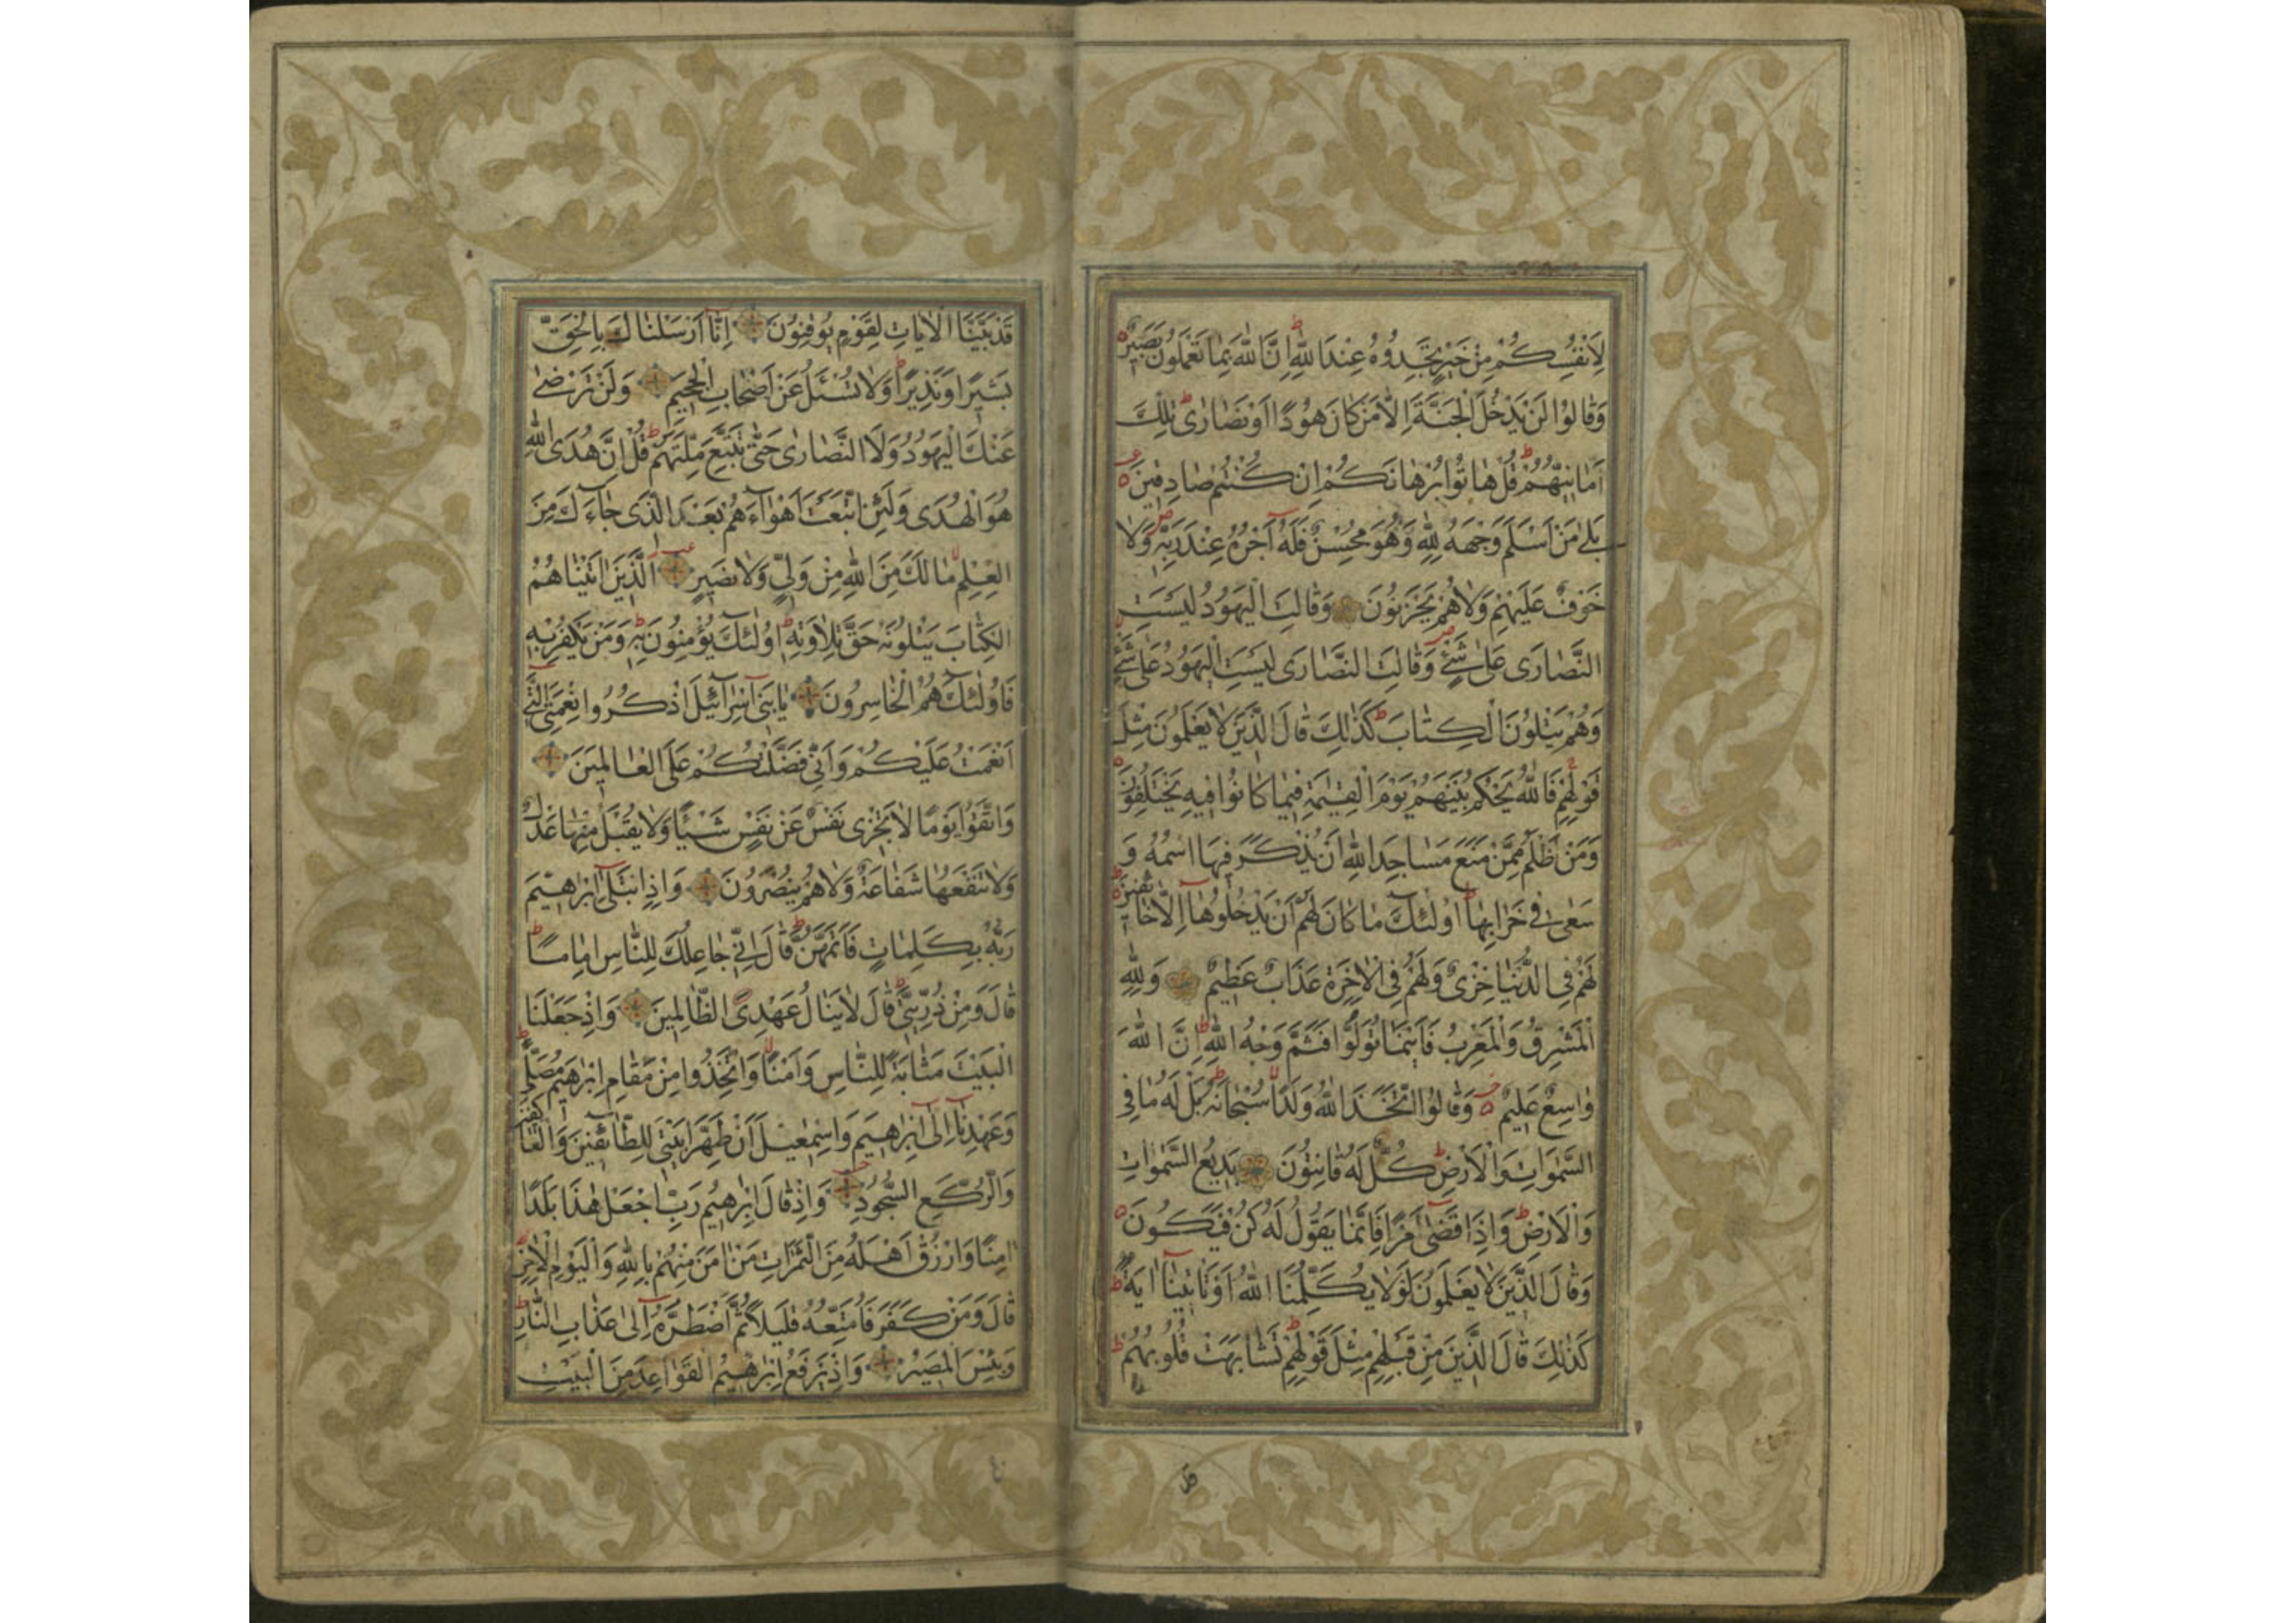 لِاَنْفُسِكُمْ مِنْ خَيْرٍ تَجِدُوهُ عِنْدَ اللهِ اِنَّ اللهَ بِمَا تَعْمَلُونَ بَصِيرٌ
وَقٰالُوا لَنْ يَدْخُلَ الْجَنَّةَ اِلَّا مَنْ كٰانَ هُودًا اَوْ نَصٰارٰى تِلْكَ
اَمٰانِيُّهُمْ قُلْ هٰاتُوا بُرْهٰانَكُمْ اِنْ كُنْتُمْ صٰادِقِينَ
بَلٰى مَنْ اَسْلَمَ وَجْهَهُ لِلّٰهِ وَهُوَ مُحْسِنٌ فَلَهُ اَجْرُهُ عِنْدَ رَبِّهِ وَلٰا
خَوْفٌ عَلَيْهِمْ وَلٰا هُمْ يَحْزَنُونَ وَقٰالَتِ الْيَهُودُ لَيْسَتِ
النَّصٰارٰى عَلٰى شَيْءٍ وَقٰالَتِ النَّصٰارٰى لَيْسَتِ الْيَهُودُ عَلٰى شَيْءٍ
وَهُمْ يَتْلُونَ الْكِتٰابَ كَذٰلِكَ قٰالَ الَّذِينَ لٰا يَعْلَمُونَ مِثْلَ
قَوْلِهِمْ فَاللهُ يَحْكُمُ بَيْنَهُمْ يَوْمَ الْقِيٰمَةِ فِيمٰا كٰانُوا فِيهِ يَخْتَلِفُونَ
وَمَنْ اَظْلَمُ مِمَّنْ مَنَعَ مَسٰاجِدَ اللهِ اَنْ يُذْكَرَ فِيهَا اسْمُهُ وَ
سَعٰى فِي خَرٰابِهٰا اُولٰئِكَ مٰا كٰانَ لَهُمْ اَنْ يَدْخُلُوهٰا اِلَّا خٰائِفِينَ
لَهُمْ فِي الدُّنْيٰا خِزْيٌ وَلَهُمْ فِي الْاٰخِرَةِ عَذٰابٌ عَظِيمٌ وَلِلّٰهِ
الْمَشْرِقُ وَالْمَغْرِبُ فَاَيْنَمٰا تُوَلُّوا فَثَمَّ وَجْهُ اللهِ اِنَّ اللهَ
وٰاسِعٌ عَلِيمٌ وَقٰالُوا اتَّخَذَ اللهُ وَلَدًا سُبْحٰانَهُ بَلْ لَهُ مٰا فِي
السَّمٰوٰاتِ وَالْاَرْضِ كُلٌّ لَهُ قٰانِتُونَ بَدِيعُ السَّمٰوٰاتِ
وَالْاَرْضِ وَاِذٰا قَضٰى اَمْرًا فَاِنَّمٰا يَقُولُ لَهُ كُنْ فَيَكُونُ
وَقٰالَ الَّذِينَ لٰا يَعْلَمُونَ لَوْلٰا يُكَلِّمُنَا اللهُ اَوْ تَأْتِينٰا اٰيَةٌ
كَذٰلِكَ قٰالَ الَّذِينَ مِنْ قَبْلِهِمْ مِثْلَ قَوْلِهِمْ تَشٰابَهَتْ قُلُوبُهُمْ
قَدْ بَيَّنَّا الْاٰيٰاتِ لِقَوْمٍ يُوقِنُونَ اِنّٰا اَرْسَلْنٰاكَ بِالْحَقِّ
بَشِيرًا وَنَذِيرًا وَلٰا تُسْئَلُ عَنْ اَصْحٰابِ الْجَحِيمِ وَلَنْ تَرْضٰى
عَنْكَ الْيَهُودُ وَلَا النَّصٰارٰى حَتّٰى تَتَّبِعَ مِلَّتَهُمْ قُلْ اِنَّ هُدَى اللهِ
هُوَ الْهُدٰى وَلَئِنِ اتَّبَعْتَ اَهْوٰاءَهُمْ بَعْدَ الَّذِي جٰاءَكَ مِنَ
الْعِلْمِ مٰا لَكَ مِنَ اللهِ مِنْ وَلِيٍّ وَلٰا نَصِيرٍ اَلَّذِينَ اٰتَيْنٰاهُمُ
الْكِتٰابَ يَتْلُونَهُ حَقَّ تِلٰاوَتِهِ اُولٰئِكَ يُؤْمِنُونَ بِهِ وَمَنْ يَكْفُرْ بِهِ
فَاُولٰئِكَ هُمُ الْخٰاسِرُونَ يٰا بَنِي اِسْرٰائِيلَ اذْكُرُوا نِعْمَتِيَ الَّتِي
اَنْعَمْتُ عَلَيْكُمْ وَاَنِّي فَضَّلْتُكُمْ عَلَى الْعٰالَمِينَ
وَاتَّقُوا يَوْمًا لٰا تَجْزِي نَفْسٌ عَنْ نَفْسٍ شَيْئًا وَلٰا يُقْبَلُ مِنْهٰا عَدْلٌ
وَلٰا تَنْفَعُهٰا شَفٰاعَةٌ وَلٰا هُمْ يُنْصَرُونَ وَاِذِ ابْتَلٰى اِبْرٰهِيمَ
رَبُّهُ بِكَلِمٰاتٍ فَاَتَمَّهُنَّ قٰالَ اِنِّي جٰاعِلُكَ لِلنّٰاسِ اِمٰامًا
قٰالَ وَمِنْ ذُرِّيَّتِي قٰالَ لٰا يَنٰالُ عَهْدِي الظّٰالِمِينَ وَاِذْ جَعَلْنَا
الْبَيْتَ مَثٰابَةً لِلنّٰاسِ وَاَمْنًا وَاتَّخِذُوا مِنْ مَقٰامِ اِبْرٰهِيمَ مُصَلًّى
وَعَهِدْنٰا اِلٰى اِبْرٰهِيمَ وَاِسْمٰعِيلَ اَنْ طَهِّرٰا بَيْتِيَ لِلطّٰائِفِينَ وَالْعٰاكِفِينَ
وَالرُّكَّعِ السُّجُودِ وَاِذْ قٰالَ اِبْرٰهِيمُ رَبِّ اجْعَلْ هٰذٰا بَلَدًا
اٰمِنًا وَارْزُقْ اَهْلَهُ مِنَ الثَّمَرٰاتِ مَنْ اٰمَنَ مِنْهُمْ بِاللهِ وَالْيَوْمِ الْاٰخِرِ
قٰالَ وَمَنْ كَفَرَ فَاُمَتِّعُهُ قَلِيلًا ثُمَّ اَضْطَرُّهُ اِلٰى عَذٰابِ النّٰارِ
وَبِئْسَ الْمَصِيرُ وَاِذْ يَرْفَعُ اِبْرٰهِيمُ الْقَوٰاعِدَ مِنَ الْبَيْتِ